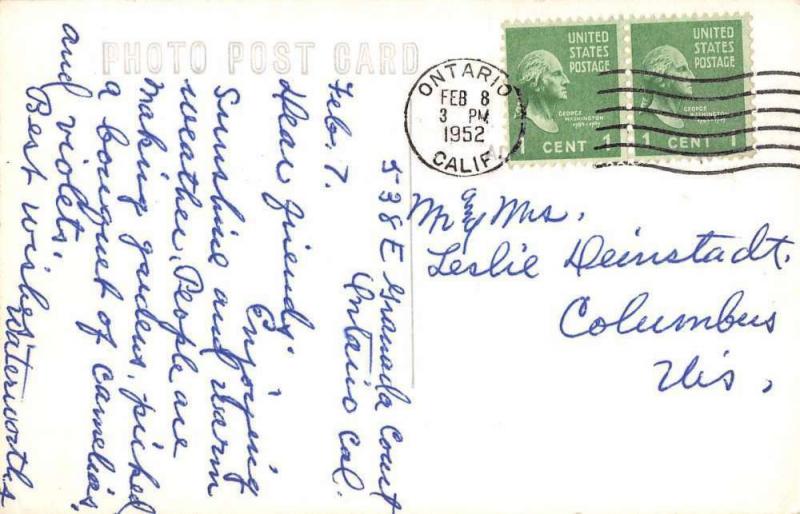 PHOTO POST CARD
538 E Granada Court
Ontario Cal.
Feb. 7.
Dear friends:
Enjoying
Sunshine and warm
weather. People are
making gardens, picked
a bouquet of camelia's,
and violets.
Best wishes
Waterworths
ONTARIO
FEB 8
3 PM
1952
CALIF.
UNITED
STATES
POSTAGE
GEORGE
WASHINGTON
1 CENT 1
UNITED
STATES
POSTAGE
GEORGE
WASHINGTON
1 CENT 1
Mr and Mrs.
Leslie Deinstadt.
Columbus
Wis.